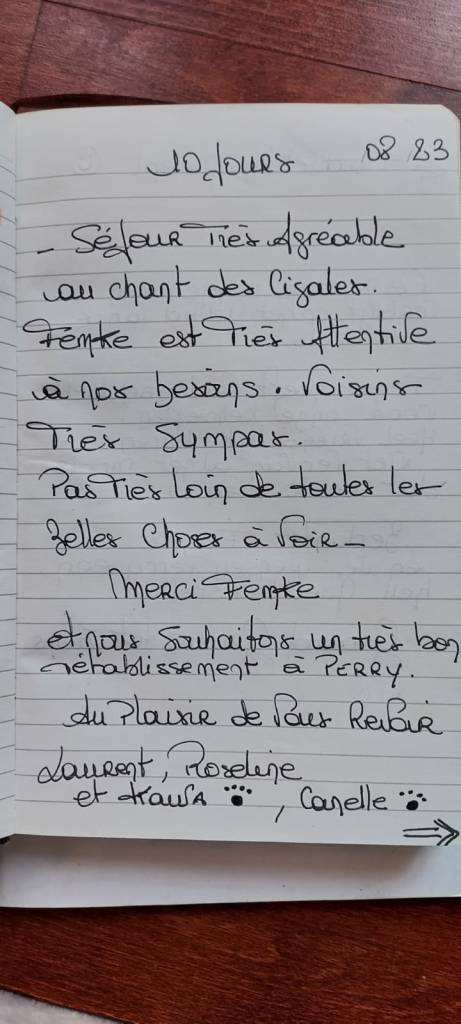 10 Jours 08 23
- Séjour Très Agréable
au chant des Cigales.
Femke est Très Attentive
à nos besoins. Voisins
Très Sympas.
Pas Très Loin de toutes les
Belles Choses à Voir -
Merci Femke
et nous Souhaitons un très bon
rétablissement à PERRY.
Au Plaisir de Vous Revoir
Laurent, Roseline
et , Canelle